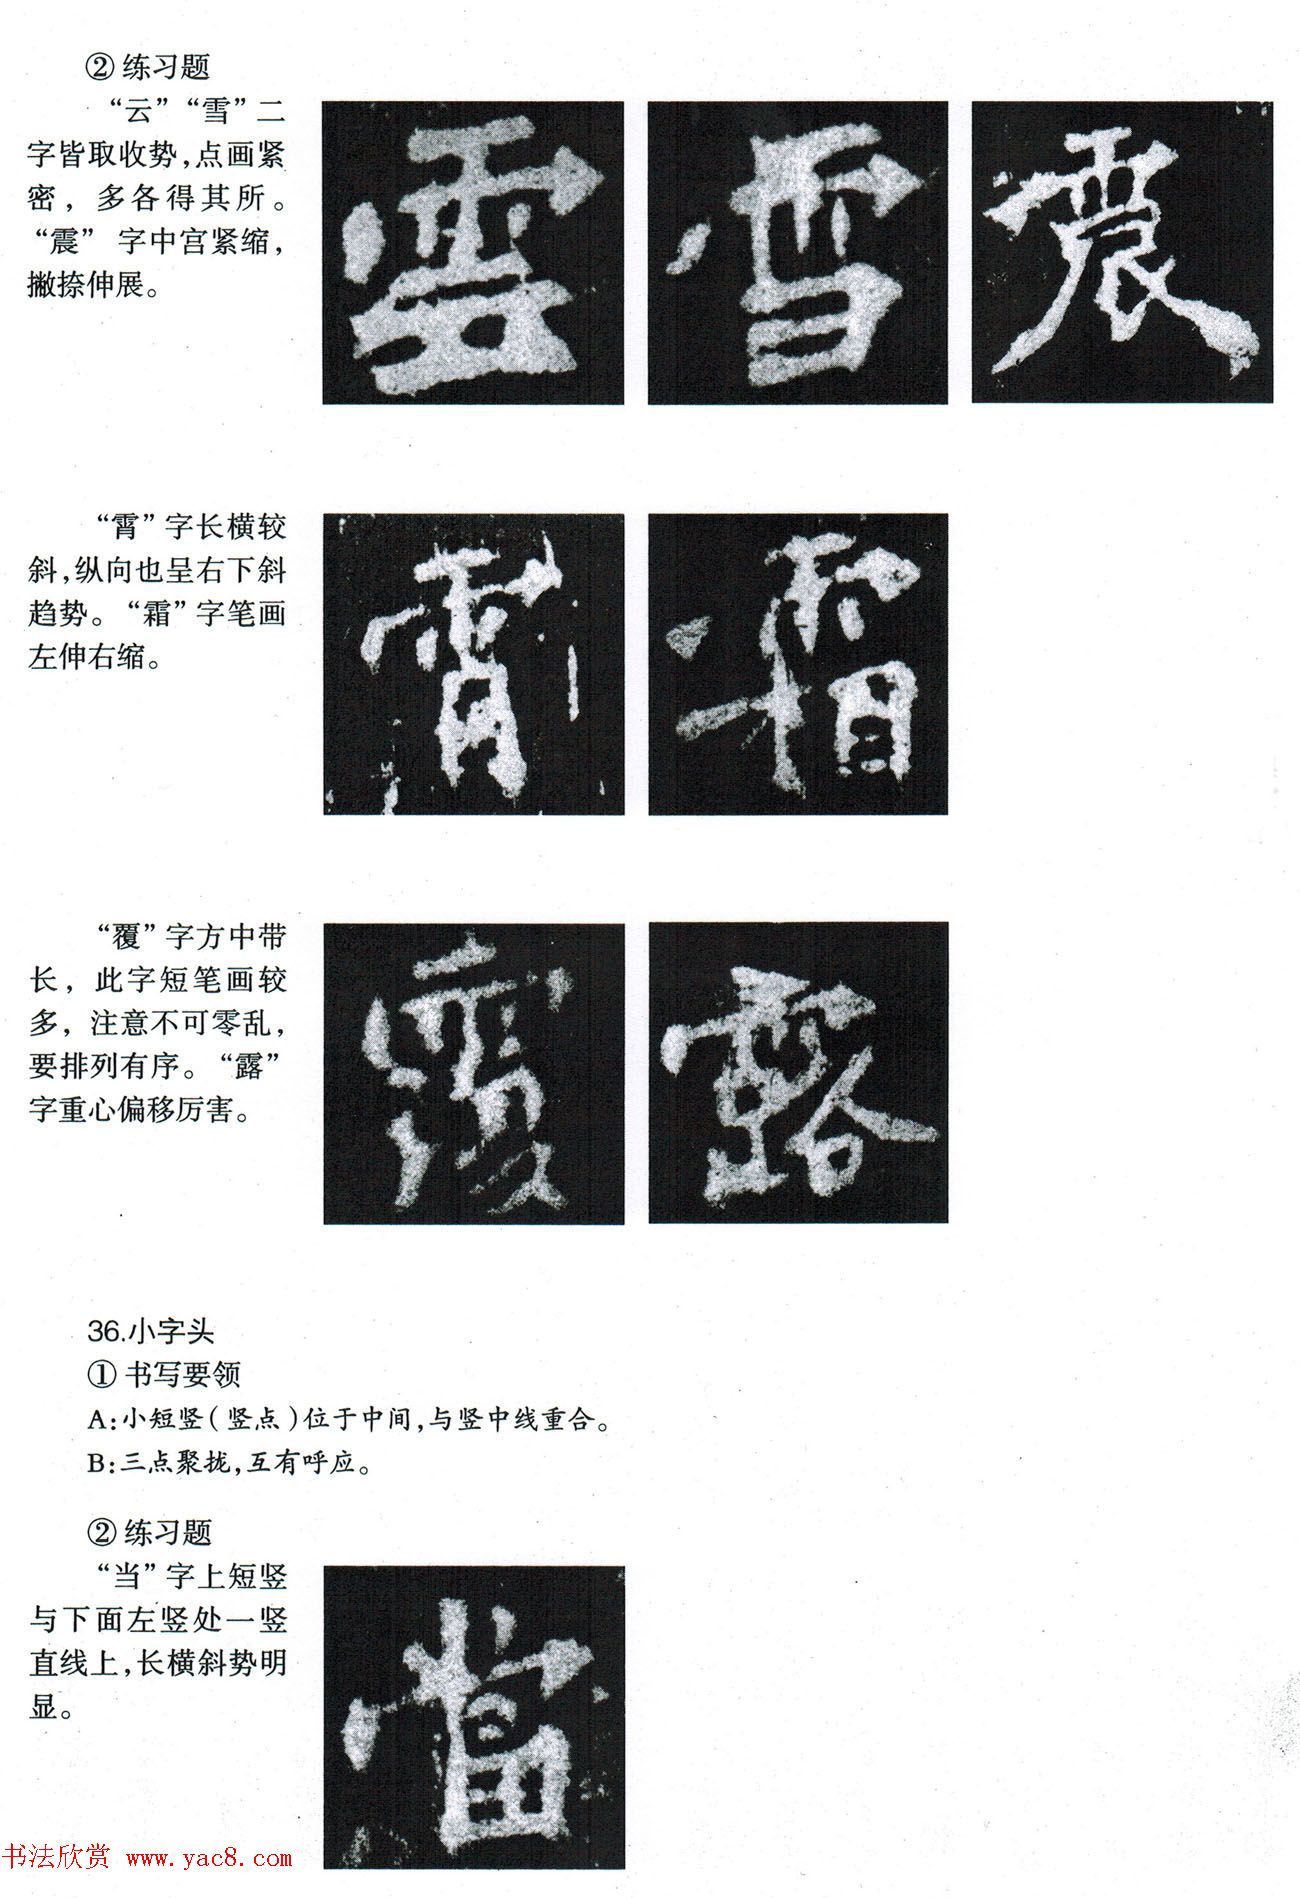 ②练习题
“云”“雪”二
字皆取收势，点画紧
密，多各得其所。
“震”字中宫紧缩，
撇捺伸展。
雲 雪 震
“霄”字长横较
斜，纵向也呈右下斜
趋势。“霜”字笔画
左伸右缩。
霄 霜
“覆”字方中带
长，此字短笔画较
多，注意不可零乱，
要排列有序。“露”
字重心偏移厉害。
覆 露
36.小字头
①书写要领
A:小短竖(竖点)位于中间,与竖中线重合。
B:三点聚拢,互有呼应。
②练习题
“当”字上短竖
与下面左竖处一竖
直线上,长横斜势明
显。
當
书法欣赏 www.yac8.com